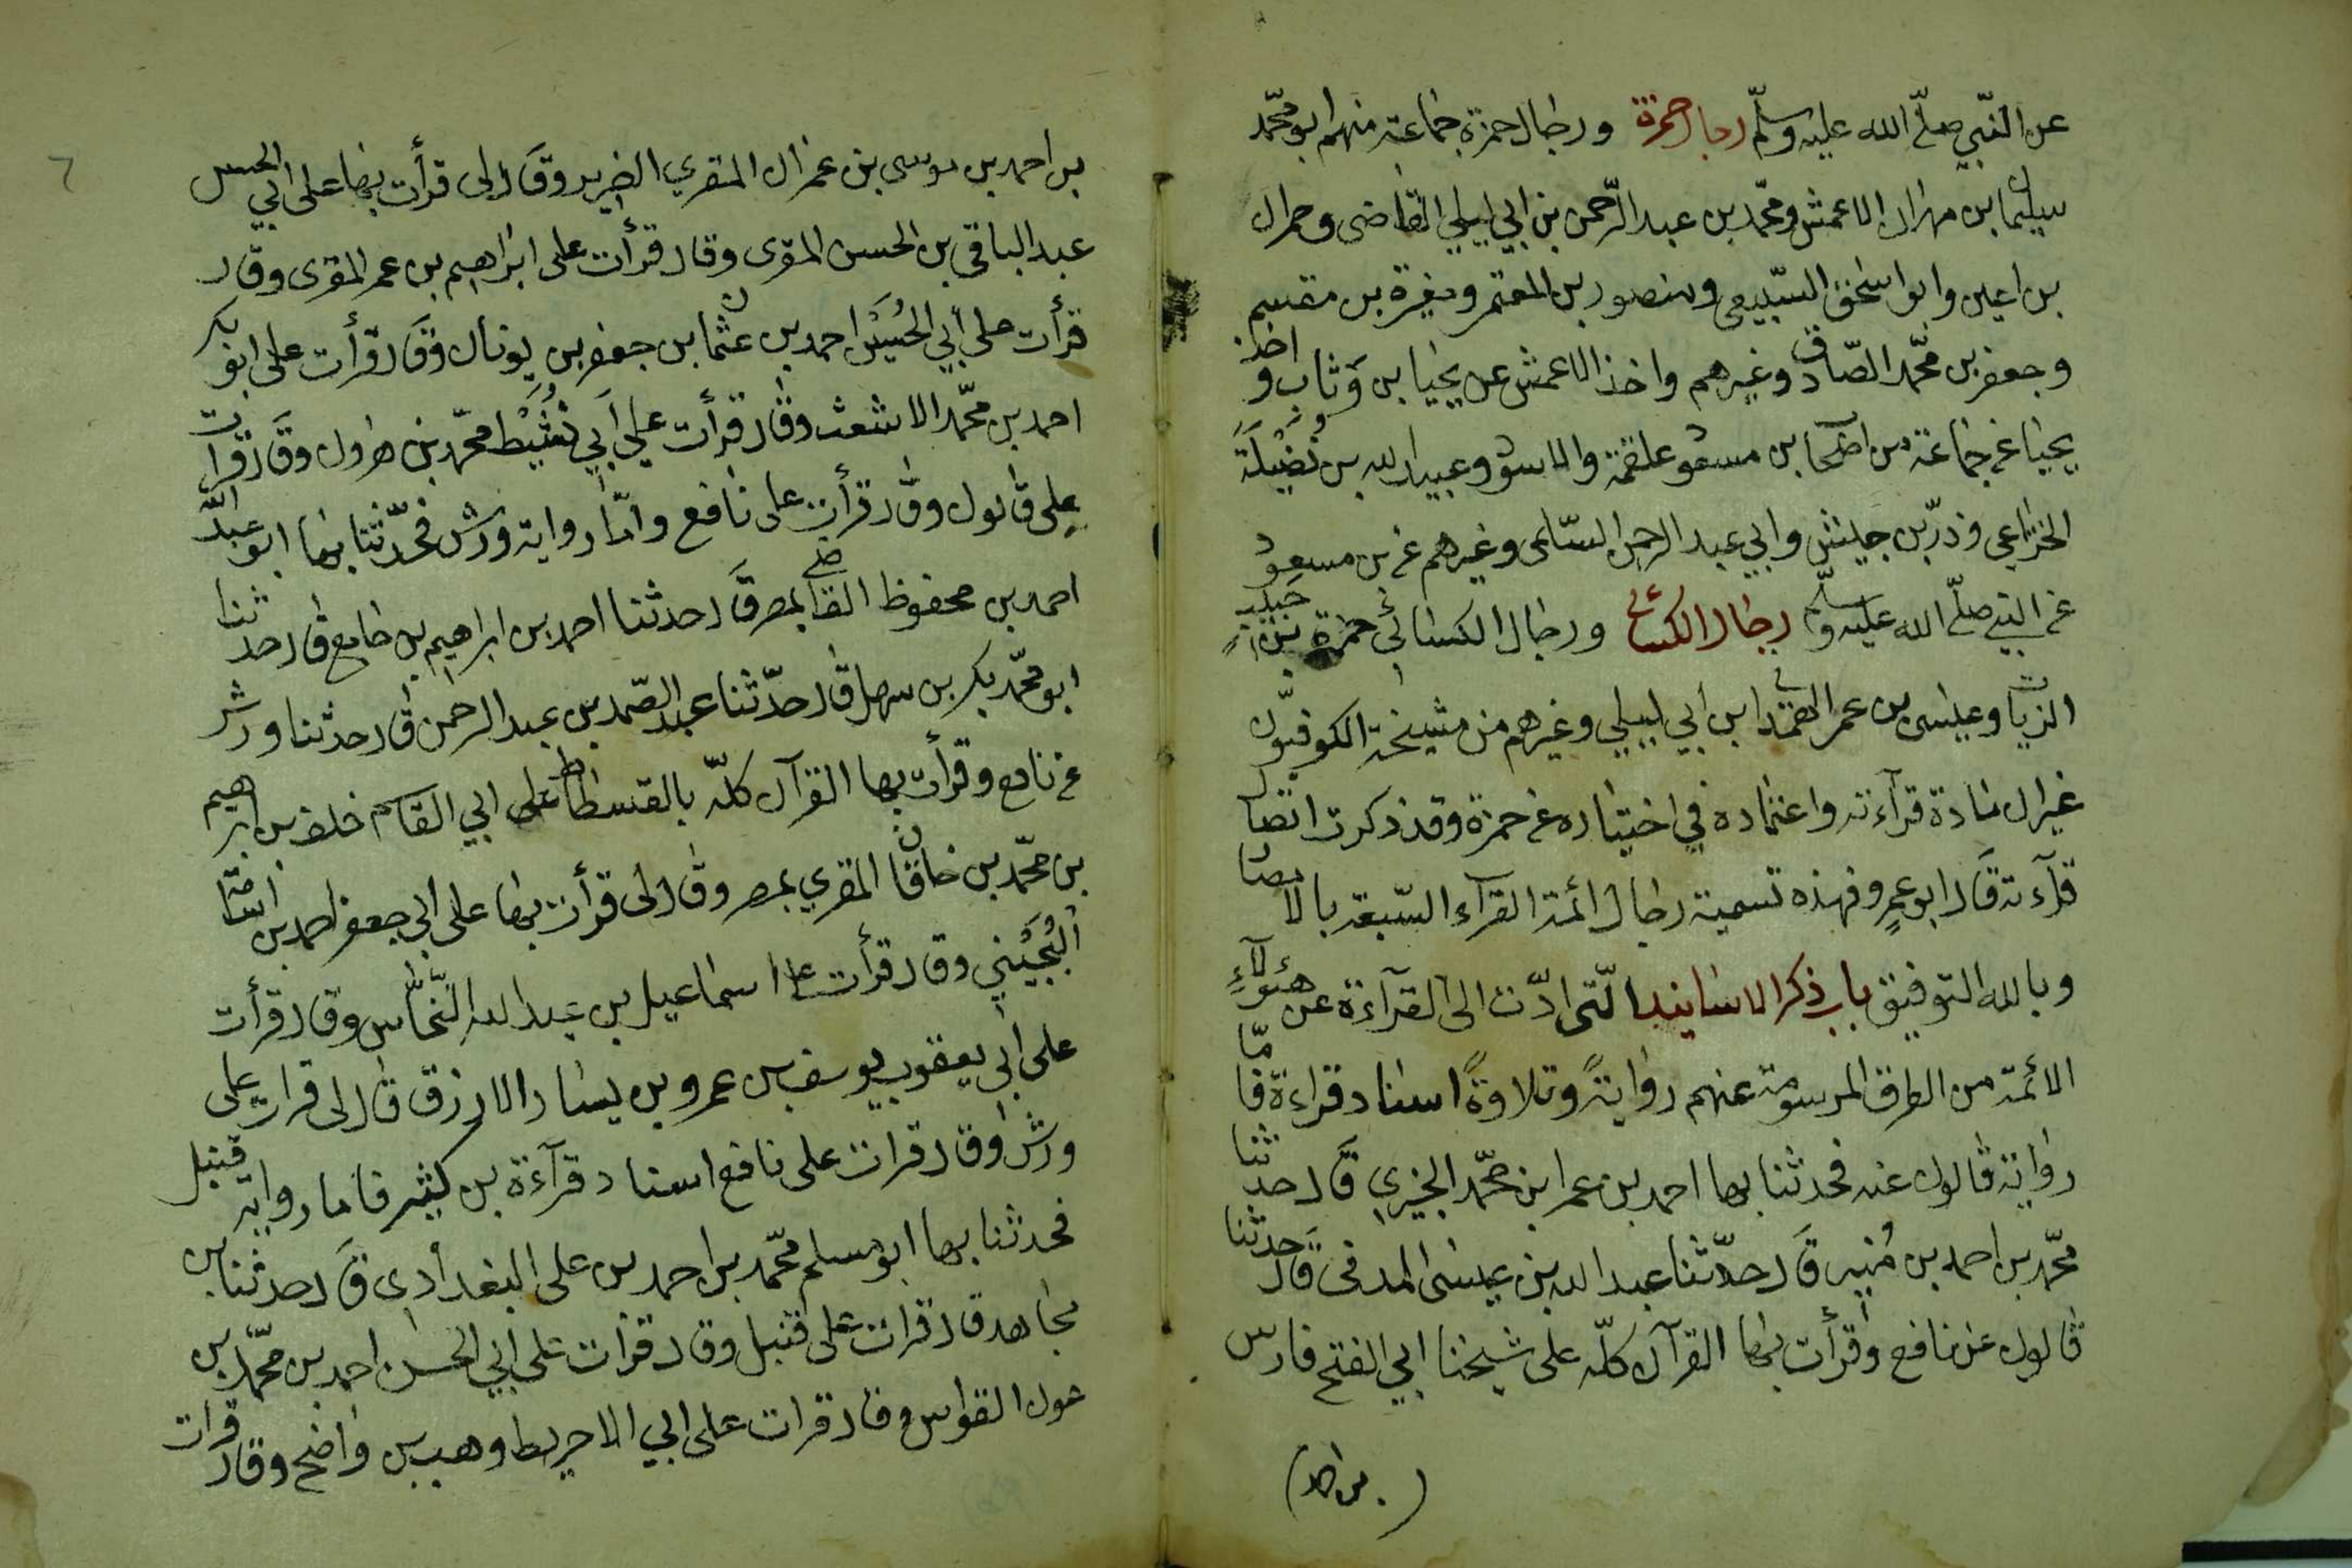 عن النّبي صلّى الله عليه وسلّم رجال حمزة ورجال حمزة جماعة منهم ابو محمّد
سليمان بن مهران الاعمش ومحمّد بن عبد الرّحمن بن ابي ليلي القاضى وحمران
بن اعين وابو اسحق السّبيعى ومنصور بن المعتمر ومغيرة بن مقسم
وجعفر بن محمّد الصّادق وغيرهم واخذ الاعمش عن يحيا بن وَثاب واخذ
يحيا عن جماعة من اصحاب بن مسعود علقمة والاسود وعبيد الله بن نُضَيْلَة
الخزاعي وذرّ بن حبيش وابي عبد الرحمن السّلمى وغيرهم عن بن مسعود
عن النبي صلّى الله عليه وسلّم رجال الكسائي ورجال الكسائي حمزة بن حبيب
الزيات وعيسى بن عمر الهمداني ابن ابي ليلي وغيرهم من مشيخة الكوفيّون
غير ان مادة قرآءته واعتماده في اختياره عن حمزة وقد ذكرت اتصال
قرآءته قَال ابو عمرٍو فهذه تسمية رجال ائمة القرآء السّبعة بالاتصال
وبالله التوفيق باب ذكر الاسانيد الّتى ادّت الى القرآءة عن هئولآءِ
الائمة من الطرق المرسومة عنهم روايةً وتلاوةً اسناد قراءة فامّا
رواية قالون عنه فحدثنا بها احمد بن عمر ابن محمّد الجيزي قَال حدّثنا
محمّد بن احمد بن مُنير قَال حدّثنا عبد الله بن عيسى المدنى قَال حدثنا
قالون عن نافع وقرأت بها القرآن كلّه على شيخنا ابي الفتح فارس
(بن احمد)
٦
بن احمد بن موسى بن عمران المقري الضرير وقَال لى قرأت بها على ابي الحسن
عبد الباقي بن الحسن المقرى وقال قرأت على ابراهيم بن عمر المقرى وقال
قرأت على أبي الحُسَيْن احمد بن عثمان بن جعفر بن بويان وقَال قرأت على ابو بكر
احمد بن محمّد الاشعث وقال قرأت علي أبي نُشَيْط محمّد بن هرون وقَال قرأت
على قالون وقال قرأت على نافع وامّا رواية ورش فحدّثنا بها ابو عبد الله
احمد بن محفوظ القاضي بمصر قَال حدثنا احمد بن ابراهيم بن جامع قال حدثنا
ابو محمّد بكر بن سهل قال حدّثنا عبد الصّمد بن عبد الرحمن قال حدثنا ورش
عن نافع وقرأت بها القرآن كلّه بالفسطاط على ابي القاسم خلف بن ابراهيم
بن محمّد بن خاقان المقري بمصر وقال لى قرأت بها على ابي جعفر احمد بن اسامة
التُجَيْبي وقال قرأت على اسماعيل بن عبد الله النّحّاس وقال قرأت
على ابي يعقوب يوسف بن عمرو بن يسار الازرق قال لى قرات على
ورش وقال قرات على نافع اسناد قرآءة بن كثير فاما رواية قنبل
فحدثنا بها ابو مسلم محمّد بن احمد بن على البغدادى قَال حدثنا بن
مجاهد قال قرات على قنبل وقال قرات على ابي الحسن احمد بن محمّد بن
عون القواس وقال قرات على ابي الاخريط وهب بن واضح وقال قرات